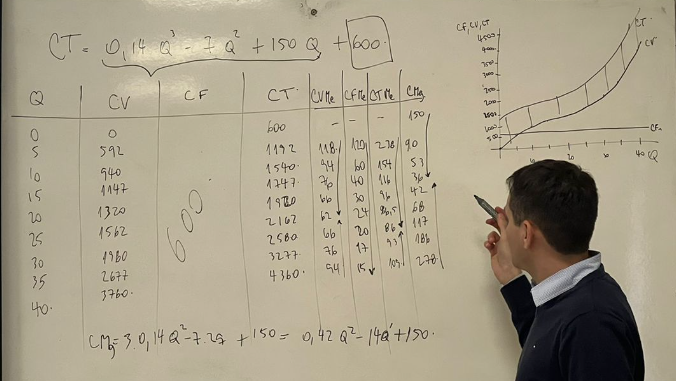 CT = 0,14 Q³ - 7 Q² + 150 Q + 600
Q CV CF CT CVMe CFMe CTMe CMg
150
0 0 600 - - -
5 592 1192 118 120 238 90
10 940 1540 94 60 154 53
15 1147 1747 76 40 116 36
20 1320 66 30 96 42
25 1562 2162 62 24 86,5 68
30 1980 2580 66 20 86 117
35 2677 3277 76 17 93 186
40 3760 4360 94 15 109 278
600
CMg = 3.0,14Q² - 7.2Q + 150 = 0,42 Q² - 14Q¹ + 150
CF, CV, CT
4500
CT
CV
CF
10 20 30 40 Q